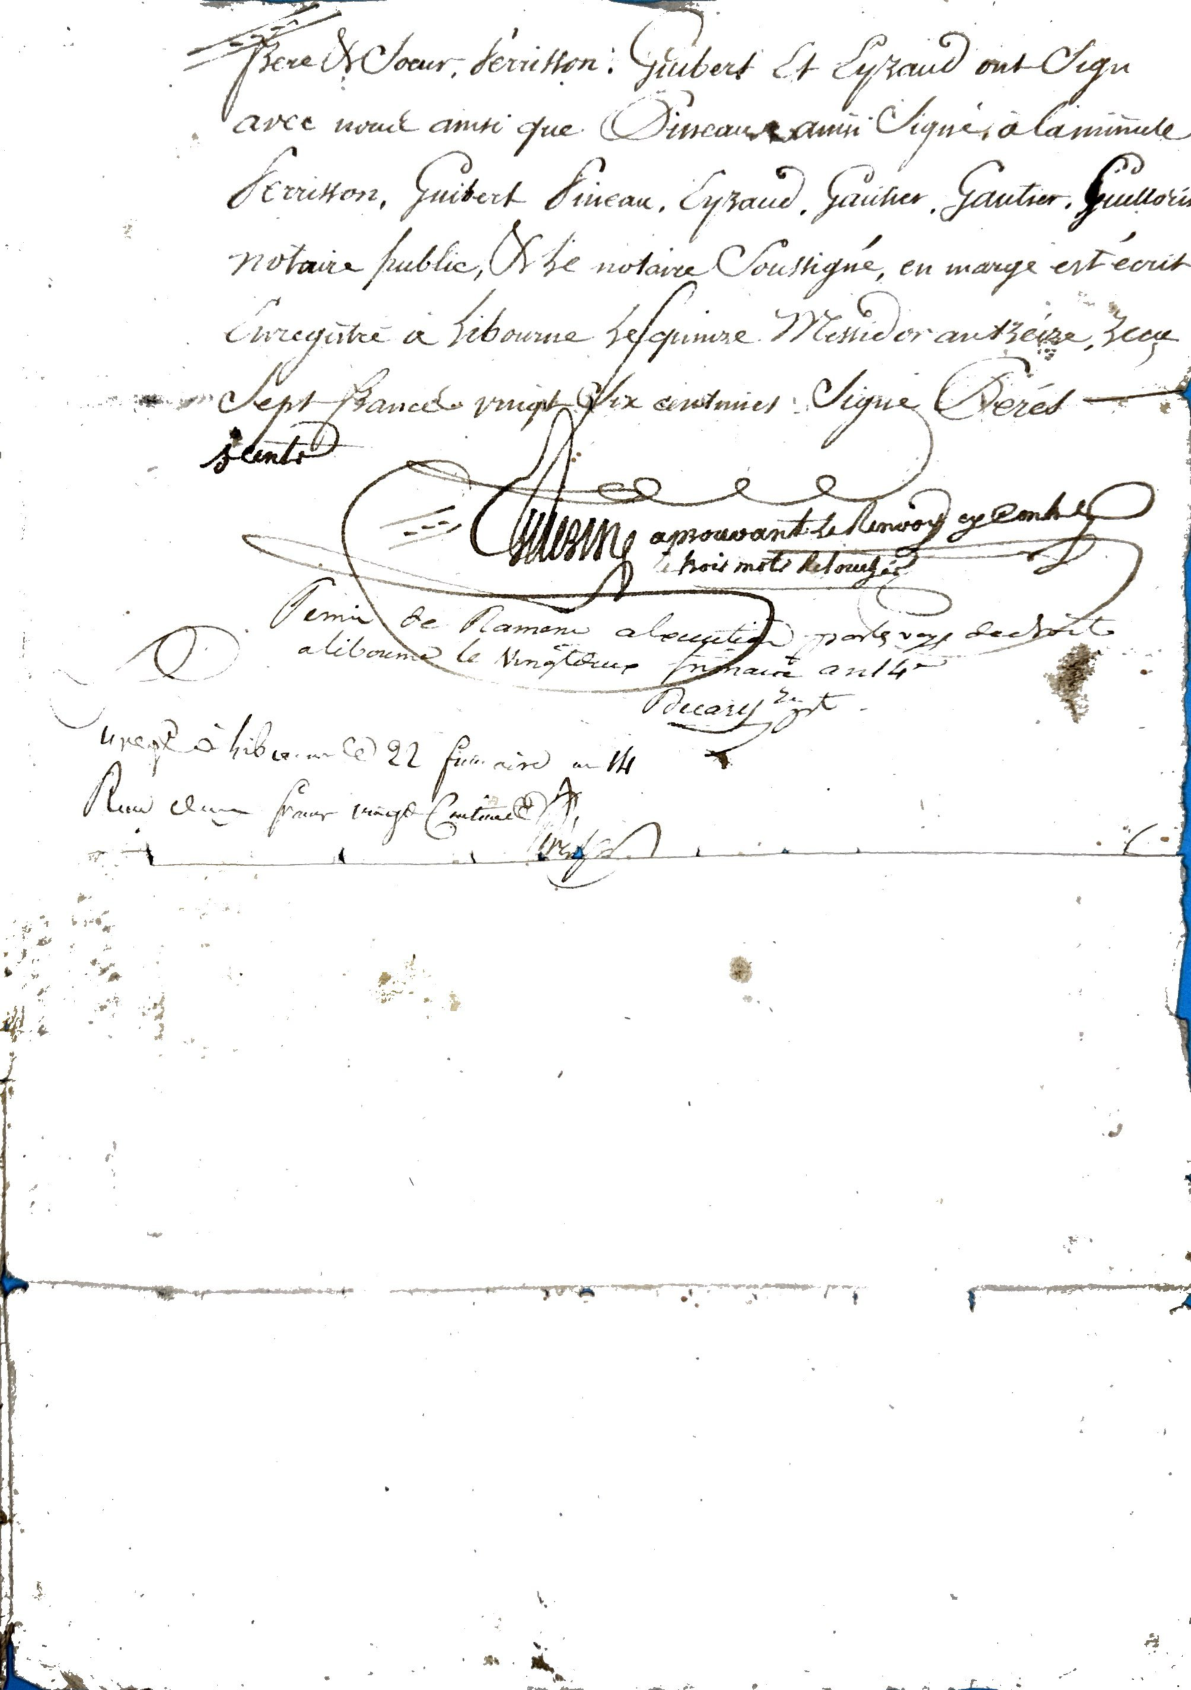 frere & Soeur, Perrisson, Guibert Et Eyraud ont Signé
avec nous ainsi que Pineau ainsi Signé, à la minute
Perrisson, Guibert Pineau, Eyraud, Gautier, Gautier, Guillorin
notaire public, & Le notaire Soussigné, en marge est écrit
Enregistré à Libourne Le quinze Messidor an treize, Reçu
Sept francs vingt Six centimes Signé Perés
approuvant Le Renvoy
trois mots
Permis de a Execution
a libourne le vingt deux frimaire an 14
à Libourne le 22 frimaire an 14
Reçu un franc vingt Centimes